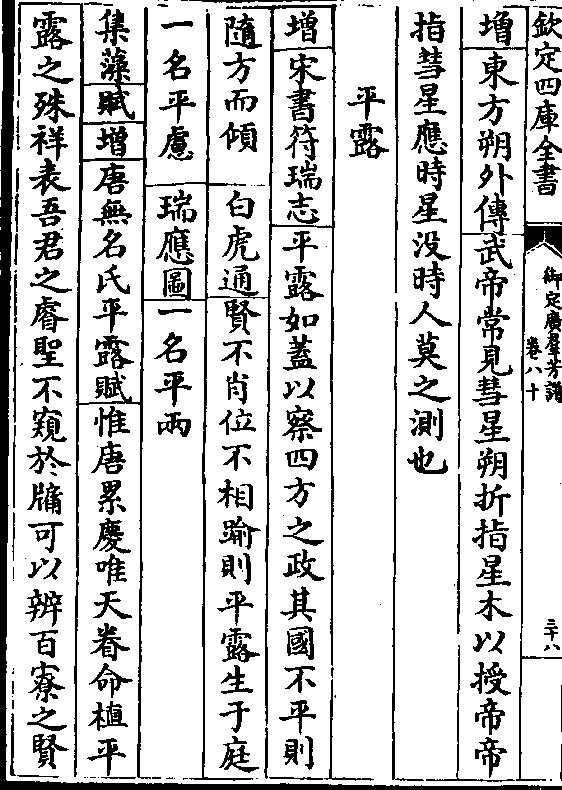 欽定四庫全書
御定廣羣芳譜
卷八十
三十八
增東方朔外傳武帝常見彗星朔折指星木以授帝帝
指彗星應時星没時人莫之測也
平露
增宋書符瑞志平露如蓋以察四方之政其國不平則
隨方而傾 白虎通賢不肖位不相踰則平露生于庭
一名平慮 瑞應圖一名平兩
集藻賦增唐無名氏平露賦惟唐累慶唯天眷命植平
露之殊祥表吾君之睿聖不窺於牖可以辨百寮之賢